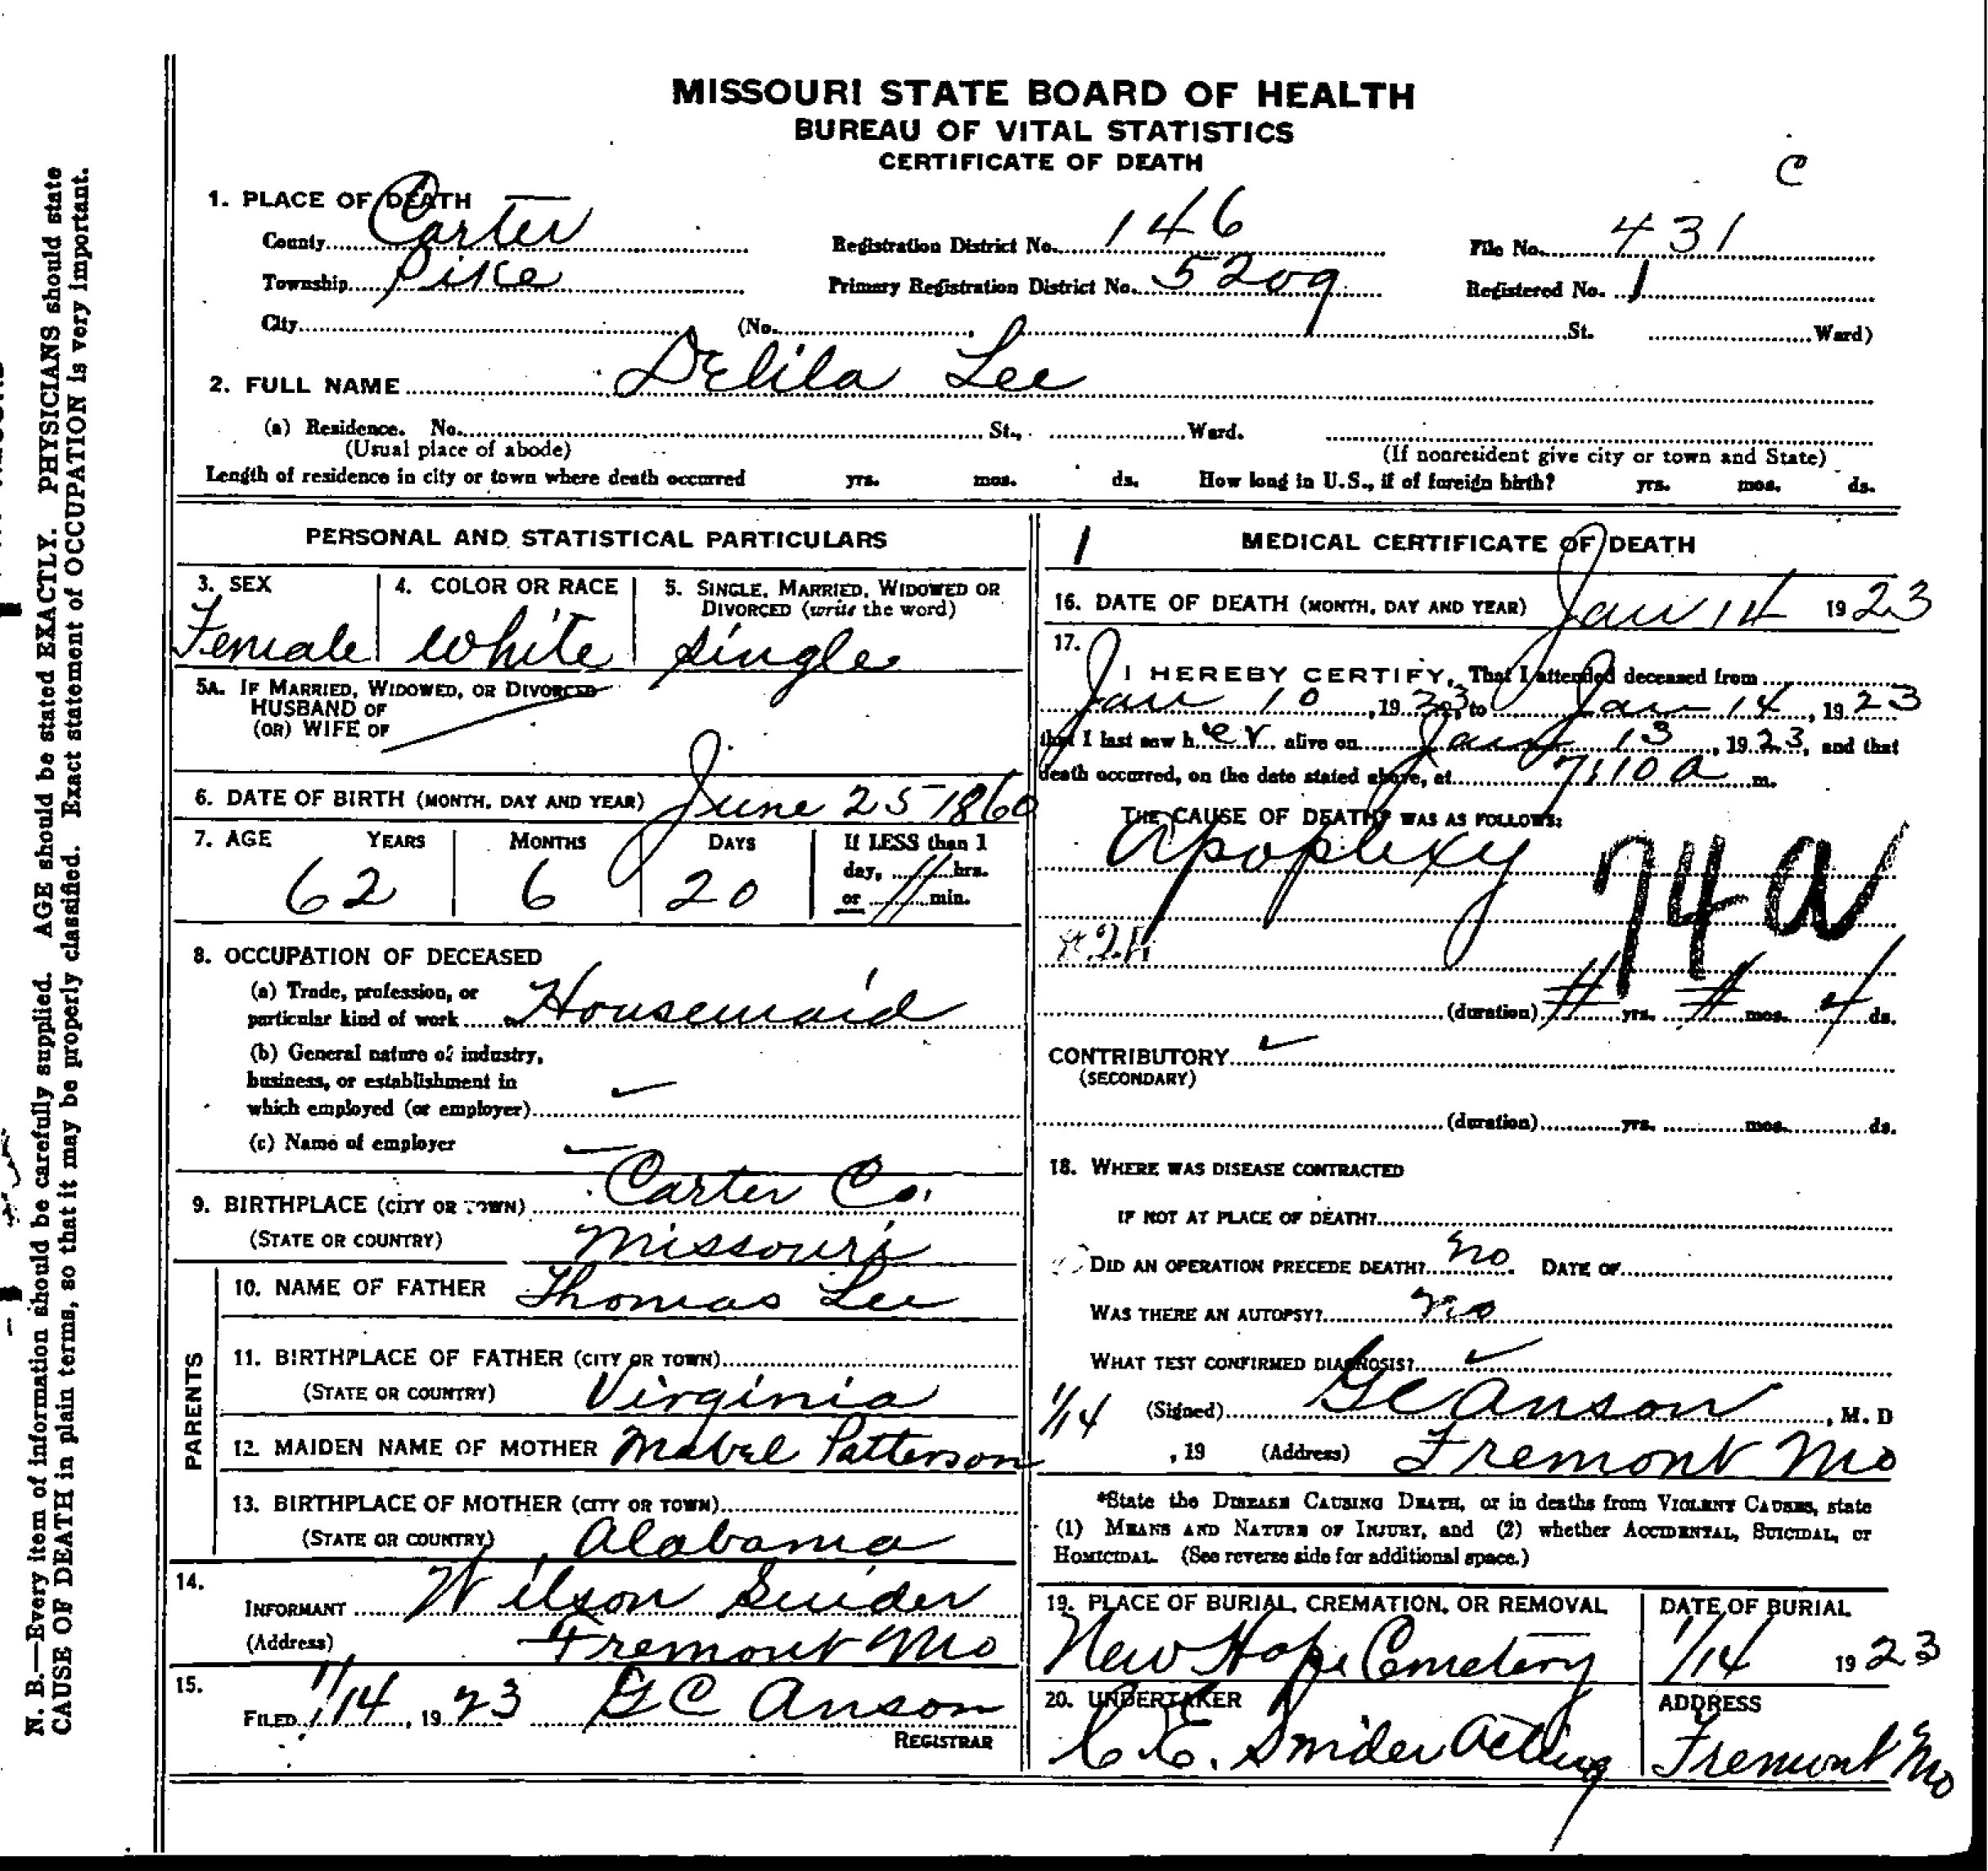 MISSOURI STATE BOARD OF HEALTH
BUREAU OF VITAL STATISTICS
CERTIFICATE OF DEATH
C
1. PLACE OF DEATH
County Carter Registration District No. 146 File No. 431
Township Pike Primary Registration District No. 5209 Registered No. 1
City (No. , St. Ward)
2. FULL NAME Delila Lee
(a) Residence. No. St., Ward.
(Usual place of abode) (If nonresident give city or town and State)
Length of residence in city or town where death occurred yrs. mos. ds. How long in U.S., if of foreign birth? yrs. mos. ds.
PERSONAL AND STATISTICAL PARTICULARS
3. SEX 4. COLOR OR RACE 5. SINGLE, MARRIED, WIDOWED OR
DIVORCED (write the word)
Female white single
5A. IF MARRIED, WIDOWED, OR DIVORCED
HUSBAND OF
(OR) WIFE OF
6. DATE OF BIRTH (MONTH, DAY AND YEAR) June 25 1860
7. AGE YEARS MONTHS DAYS If LESS than 1
day, // hrs.
62 6 20 or // min.
8. OCCUPATION OF DECEASED
(a) Trade, profession, or
particular kind of work Housemaid
(b) General nature of industry,
business, or establishment in
which employed (or employer)
(c) Name of employer
9. BIRTHPLACE (CITY OR TOWN) Carter Co.
(STATE OR COUNTRY) Missouri
PARENTS
10. NAME OF FATHER Thomas Lee
11. BIRTHPLACE OF FATHER (CITY OR TOWN)
(STATE OR COUNTRY) Virginia
12. MAIDEN NAME OF MOTHER Mabel Patterson
13. BIRTHPLACE OF MOTHER (CITY OR TOWN)
(STATE OR COUNTRY) Alabama
14.
INFORMANT Wilson Snider
(Address) Fremont Mo
15.
FILED 1/14, 1923 G C Anson
REGISTRAR
1 MEDICAL CERTIFICATE OF DEATH
16. DATE OF DEATH (MONTH, DAY AND YEAR) Jan 14 1923
17.
I HEREBY CERTIFY, That I attended deceased from
Jan 10, 1923, to Jan 14, 1923
that I last saw her alive on Jan 13, 1923, and that
death occurred, on the date stated above, at 7:10 a m.
THE CAUSE OF DEATH* WAS AS FOLLOWS:
Apoplexy
74a
(duration) # yrs. # mos. 4 ds.
CONTRIBUTORY
(SECONDARY)
(duration) yrs. mos. ds.
18. WHERE WAS DISEASE CONTRACTED
IF NOT AT PLACE OF DEATH?
DID AN OPERATION PRECEDE DEATH? no DATE OF
WAS THERE AN AUTOPSY? no
WHAT TEST CONFIRMED DIAGNOSIS?
1/14 (Signed) G C Anson, M. D
, 19 (Address) Fremont Mo
*State the DISEASE CAUSING DEATH, or in deaths from VIOLENT CAUSES, state
(1) MEANS AND NATURE OF INJURY, and (2) whether ACCIDENTAL, SUICIDAL, or
HOMICIDAL. (See reverse side for additional space.)
19. PLACE OF BURIAL, CREMATION, OR REMOVAL DATE OF BURIAL
New Hope Cemetery 1/14 1923
20. UNDERTAKER ADDRESS
C. E. Snider Acting Fremont Mo
N. B.—Every item of information should be carefully supplied. AGE should be stated EXACTLY. PHYSICIANS should state
CAUSE OF DEATH in plain terms, so that it may be properly classified. Exact statement of OCCUPATION is very important.